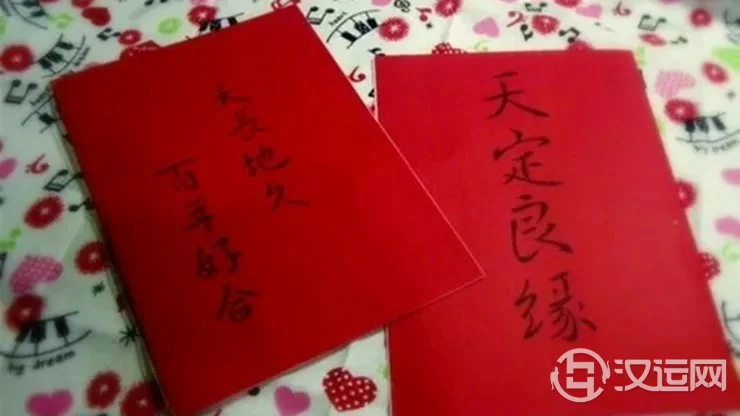 天長地久
百年好合
天定良缘
by dream
by dream
汉运网